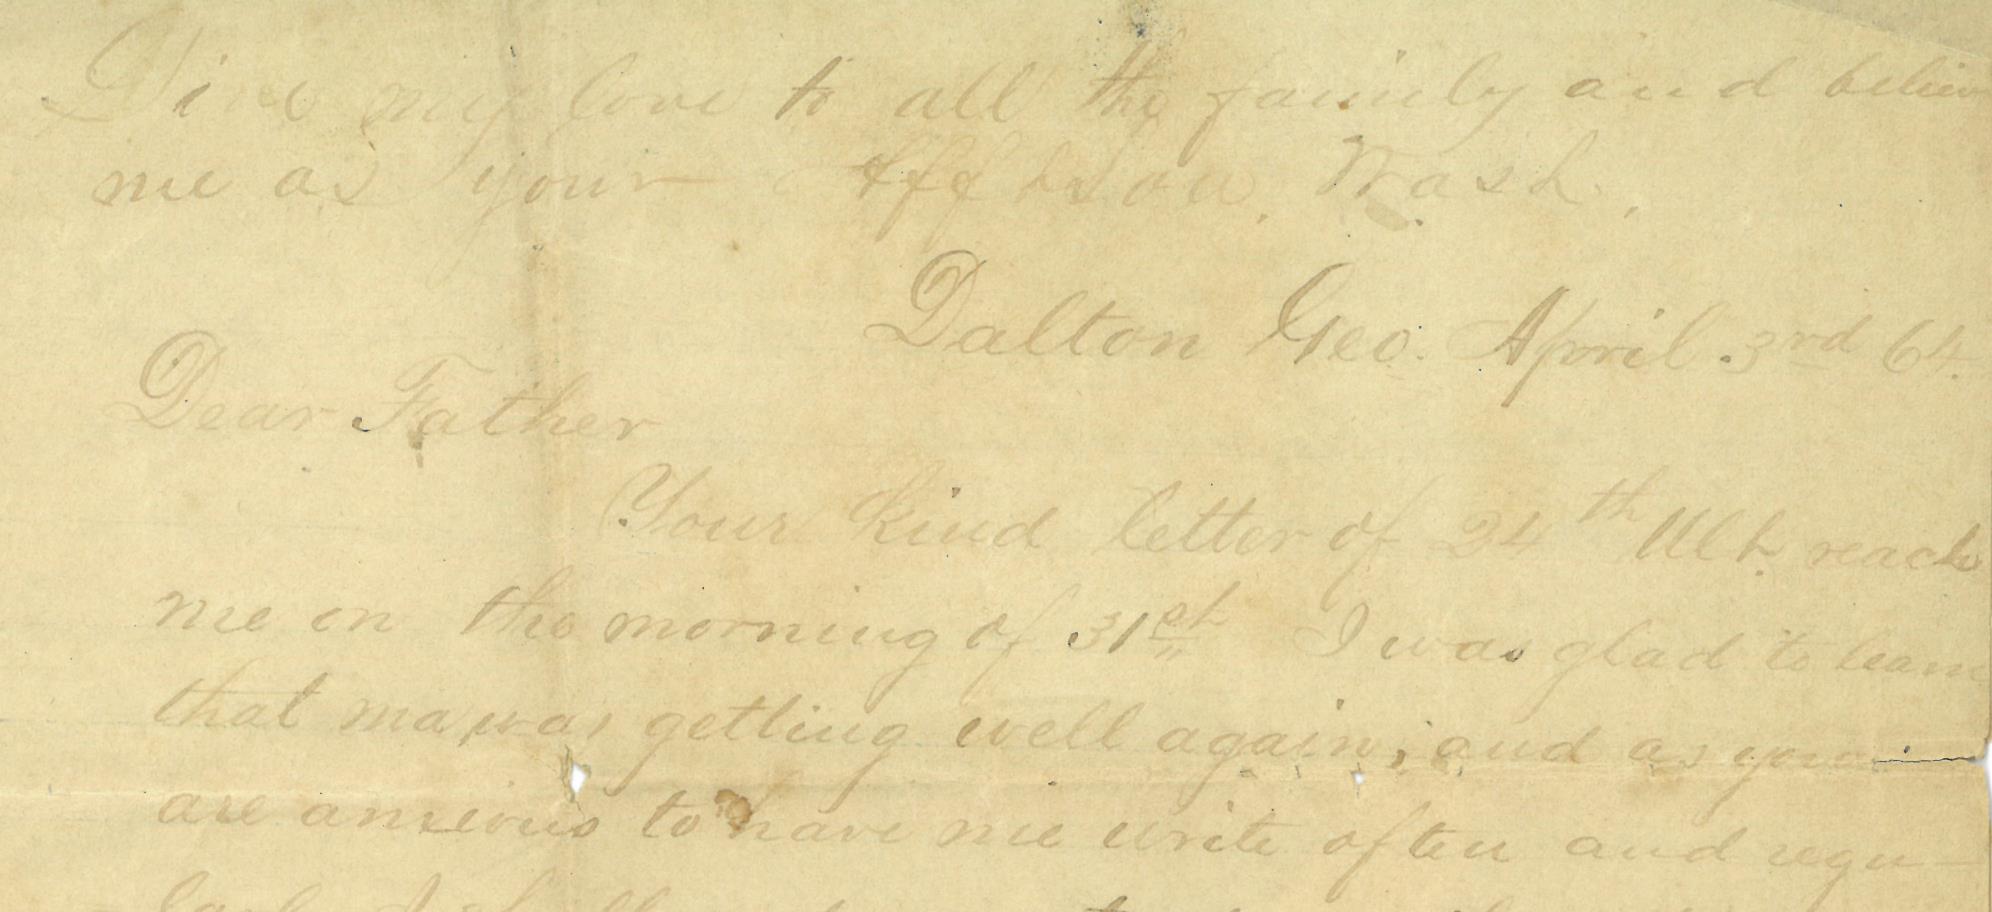 Give my love to all the family and believe
me as your Afft son. Wash.
Dalton Geo. April 3rd 64.
Dear Father
Your kind letter of 24th Ult. reach
me on the morning of 31st I was glad to learn
that ma was getting well again, and as you
are anxious to have me write often and regu-
larly I shall